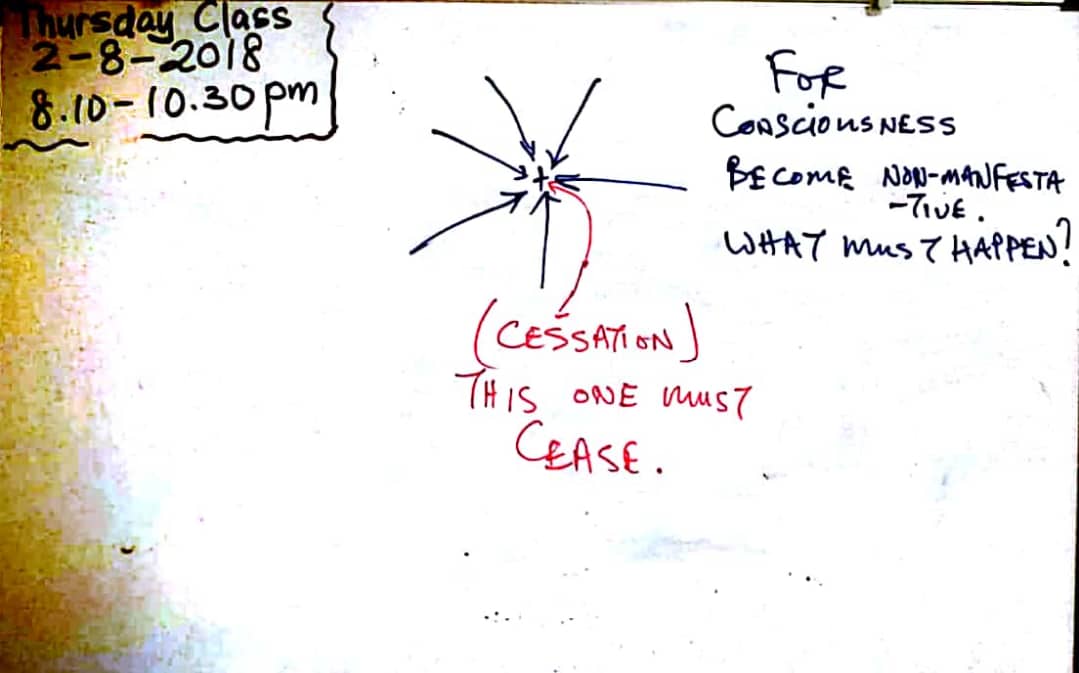 Thursday Class
2-8-2018
8.10-10.30pm
FOR
CONSCIOUSNESS
BECOME NON-MANFESTA
-TIVE.
WHAT MUST HAPPEN?
+
(CESSATION)
THIS ONE MUST
CEASE.